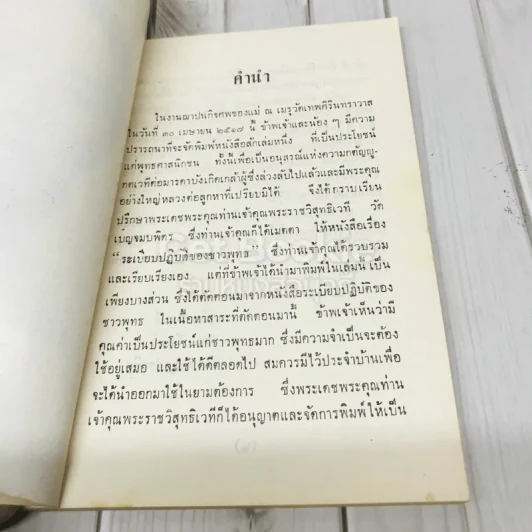 คำนำ
ในงานฌาปนกิจศพของแม่ ณ เมรุวัดเทพศิรินทราวาส
ในวันที่ ๓๐ เมษายน ๒๕๑๗ นี้ ข้าพเจ้าและน้อง ๆ มีความ
ปรารถนาที่จะจัดพิมพ์หนังสือสักเล่มหนึ่ง ที่เป็นประโยชน์
แก่พุทธศาสนิกชน ทั้งนี้เพื่อเป็นอนุสรณ์แห่งความกตัญญู-
กตเวทีต่อมารดาบังเกิดเกล้าผู้ซึ่งล่วงลับไปแล้วและมีพระคุณ
อย่างใหญ่หลวงต่อลูกหาที่เปรียบมิได้ จึงได้กราบเรียน
ปรึกษาพระเดชพระคุณท่านเจ้าคุณพระราชวิสุทธิเวที วัด
เบ็ญจมบพิตร ซึ่งท่านเจ้าคุณก็ได้เมตตา ให้หนังสือเรื่อง
"ระเบียบปฏิบัติของชาวพุทธ" ซึ่งท่านเจ้าคุณได้รวบรวม
และเรียบเรียงเอง แต่ที่ข้าพเจ้าได้นำมาพิมพ์ในเล่มนี้ เป็น
เพียงบางส่วน ซึ่งได้ตัดตอนมาจากหนังสือระเบียบปฏิบัติของ
ชาวพุทธ ในเนื้อหาสาระที่ตัดตอนมานี้ ข้าพเจ้าเห็นว่ามี
คุณค่าเป็นประโยชน์แก่ชาวพุทธมาก ซึ่งมีความจำเป็นจะต้อง
ใช้อยู่เสมอ และใช้ได้ดีตลอดไป สมควรมีไว้ประจำบ้านเพื่อ
จะได้นำออกมาใช้ในยามต้องการ ซึ่งพระเดชพระคุณท่าน
เจ้าคุณพระราชวิสุทธิเวทีก็ได้อนุญาตและจัดการพิมพ์ให้เป็น